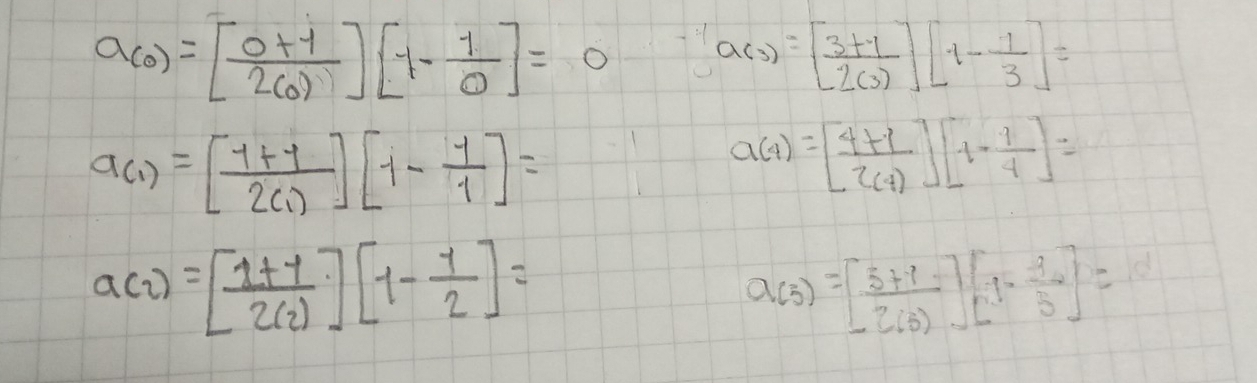 a(0) = [0+1 / 2(0)] [1 - 1/0] = 0
a(1) = [1+1 / 2(1)] [1 - 1/1] =
a(2) = [1+1 / 2(2)] [1 - 1/2] =
a(3) = [3+1 / 2(3)] [1 - 1/3] =
a(4) = [4+1 / 2(4)] [1 - 1/4] =
a(5) = [5+1 / 2(5)] [1 - 1/5] =